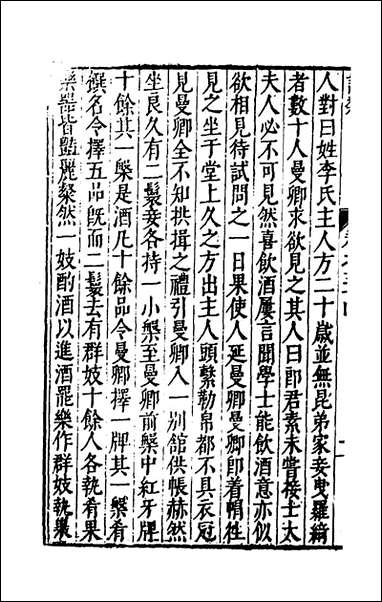 人對曰姓李氏主人方二十歲並無昆弟家妾曳羅綺
者數十人曼卿求欲見之其人曰郎君素未嘗接士大
夫人必不可見然喜飲酒屢言聞學士能飲酒意亦似
欲相見待試問之一日果使人延曼卿曼卿即着帽徃
見之坐于堂上久之方出主人頭繫勒帛都不具衣冠
見曼卿全不知拱揖之禮引曼卿入一別舘供帳赫然
坐良久有二鬟妾各持一小槃至曼卿前槃中紅牙牌
十餘其一槃是酒凡十餘品令曼卿擇一牌其一槃肴
饌名令擇五品旣而二鬟去有群妓十餘人各執肴果
樂器皆豔麗粲然一妓酌酒以進酒罷樂作群妓執菓